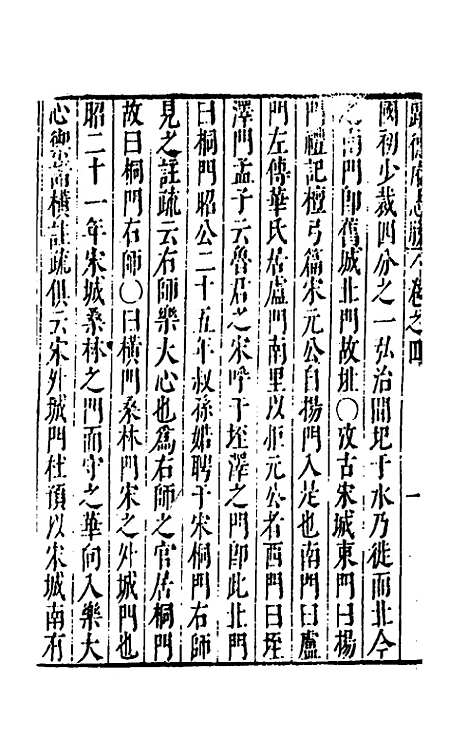 歸德府志 卷之四 一
國初少裁四分之一弘治間圮于水乃徙而北今
之南門即舊城北門故址〇攷古宋城東門曰揚
門禮記檀弓篇宋元公自揚門入是也南門曰盧
門左傳華氏居盧門南里以拒元公者西門曰垤
澤門孟子云魯君之宋呼于垤澤之門即此北門
曰桐門昭公二十五年叔孫婼聘于宋桐門右師
見之註疏云右師樂大心也為右師之官居桐門
故曰桐門右師〇曰橫門桑林門宋之外城門也
昭二十一年宋城桑林之門而守之華向入樂大
心禦諸橫註疏俱云宋外城門杜預以宋城南有